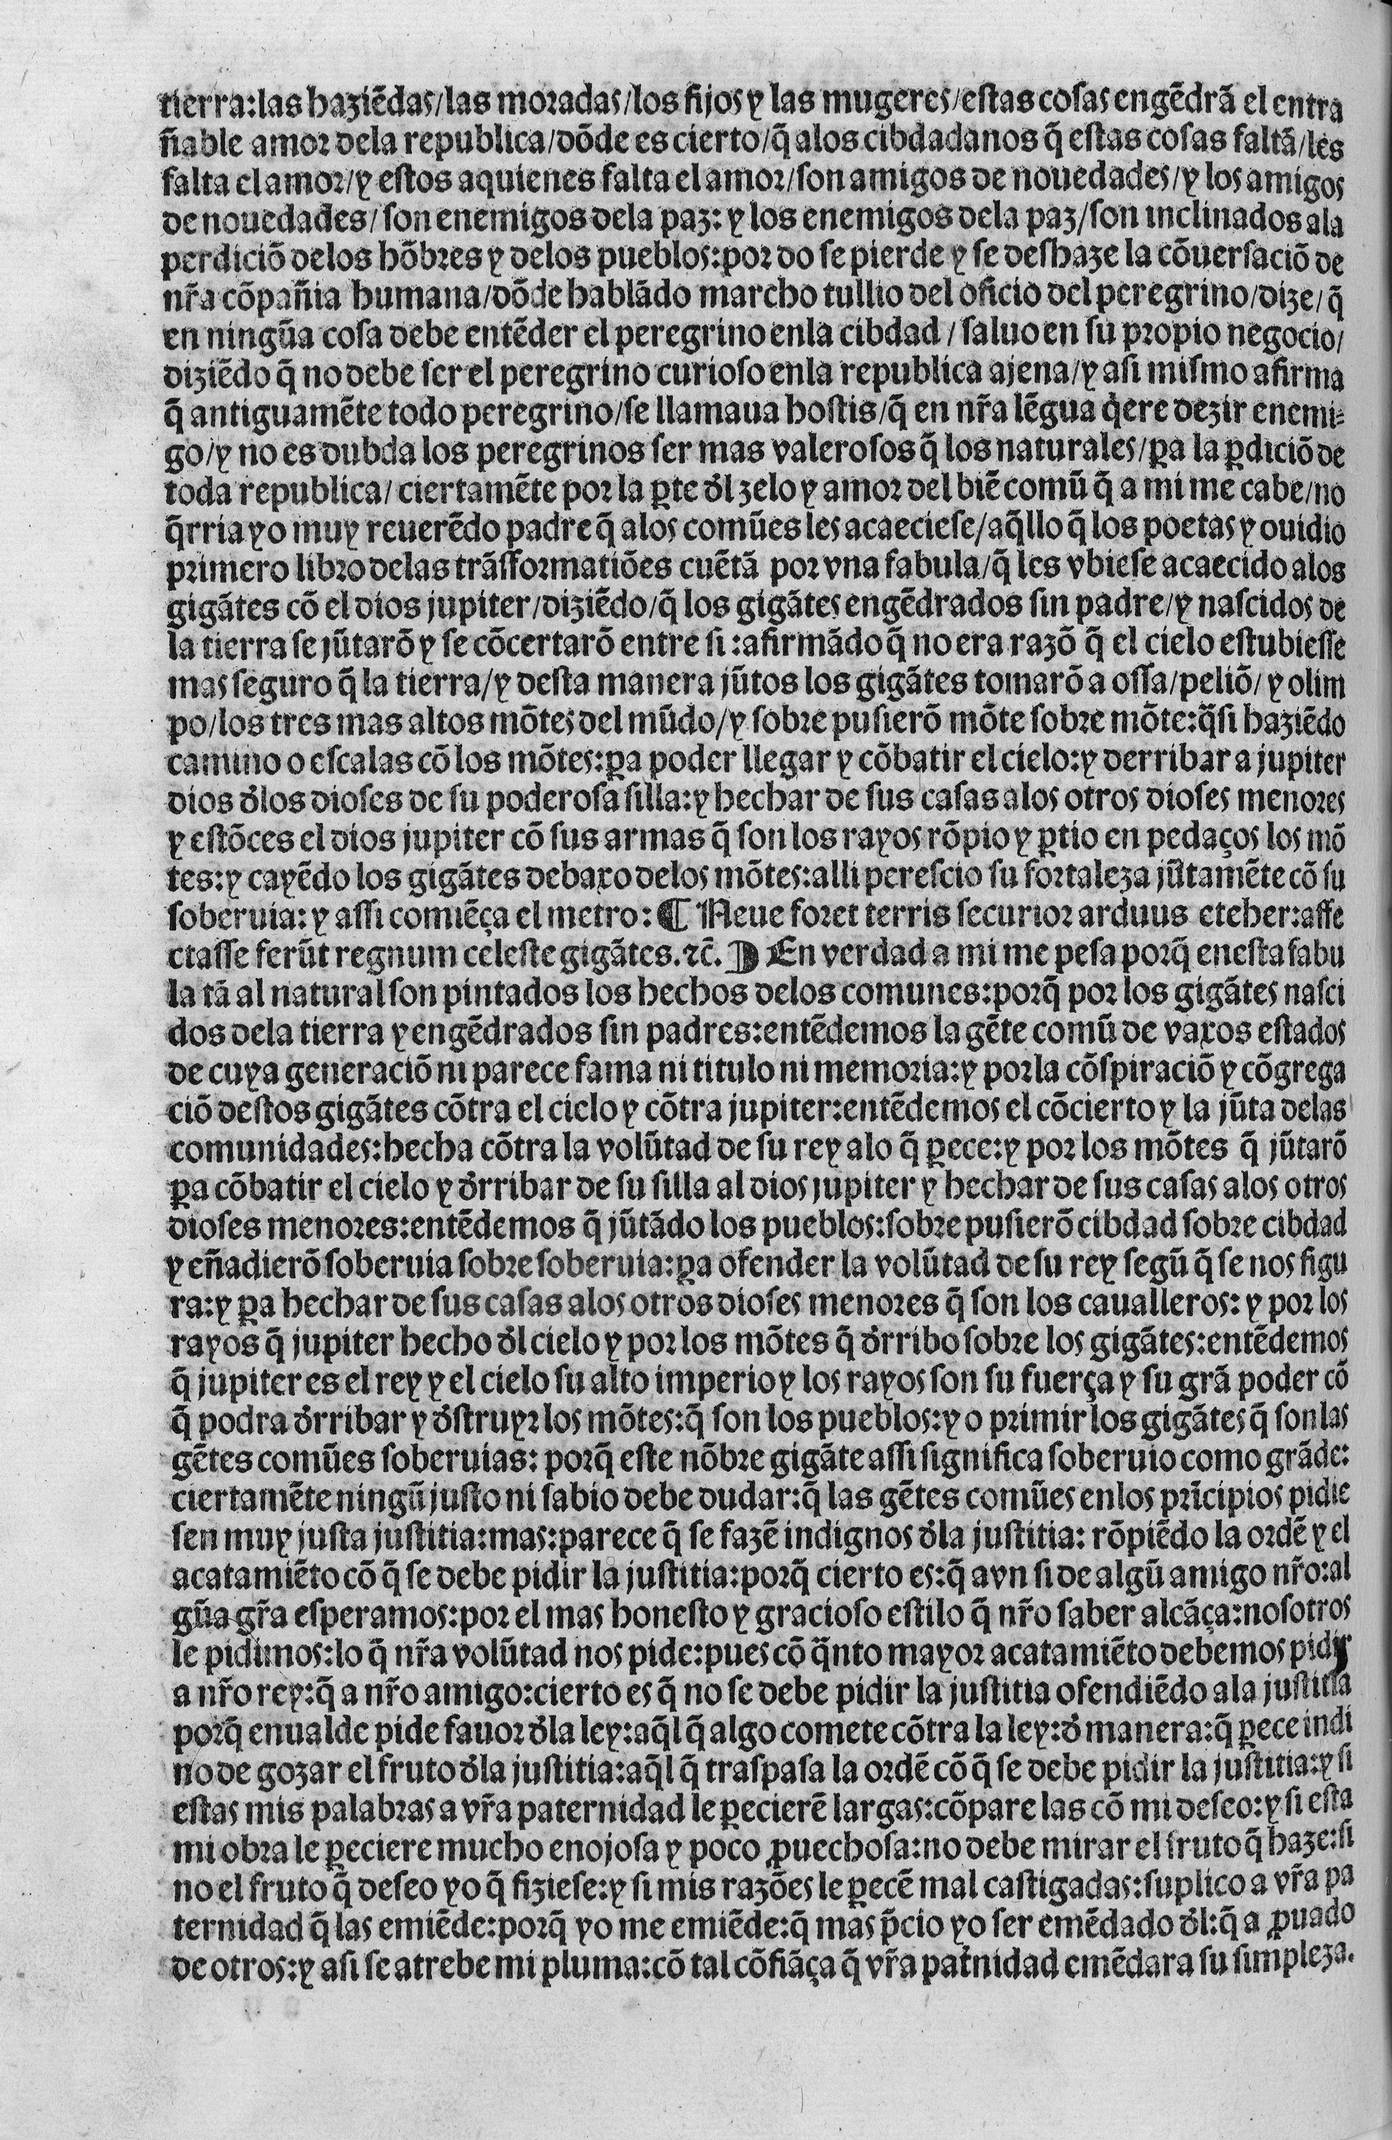 tierra:las haziẽdas/las moradas/los fijos y las mugeres/estas cosas engẽdrã el entra
ñable amor dela republica/dõde es cierto/q̃ alos cibdadanos q̃ estas cosas faltã/les
falta el amor/y estos aquienes falta el amor/son amigos de nouedades/y los amigos
de nouedades/son enemigos dela paz: y los enemigos dela paz/son inclinados ala
perdiciõ delos hõbres y delos pueblos:por do se pierde y se deshaze la cõuersaciõ de
nr̃a cõpañia humana/dõde hablãdo marcho tullio del oficio del peregrino/dize/q̃
en ningũa cosa debe entẽder el peregrino enla cibdad/saluo en su propio negocio/
diziẽdo q̃ no debe ser el peregrino curioso enla republica ajena/y asi mismo afirma
q̃ antiguamẽte todo peregrino/se llamaua hostis/q̃ en nr̃a lẽgua q̃ere dezir enemi-
go/y no es dubda los peregrinos ser mas valerosos q̃ los naturales/ꝑa la ꝑdiciõ de
toda republica/ciertamẽte por la ꝑte ďl zelo y amor del biẽ comũ q̃ a mi me cabe/no
q̃rria yo muy reuerẽdo padre q̃ alos comũes les acaeciese/aq̃llo q̃ los poetas y ouidio
primero libro delas trãsformatiões cuẽtã por vna fabula/q̃ les vbiese acaecido alos
gigãtes cõ el dios jupiter/diziẽdo/q̃ los gigãtes engẽdrados sin padre/y nascidos de
la tierra se jũtarõ y se cõcertarõ entre si:afirmãdo q̃ no era razõ q̃ el cielo estubiesse
mas seguro q̃ la tierra/y desta manera jũtos los gigãtes tomarõ a ossa/peliõ/y olim
po/los tres mas altos mõtes del mũdo/y sobre pusierõ mõte sobre mõte:q̃si haziẽdo
camino o escalas cõ los mõtes:ꝑa poder llegar y cõbatir el cielo:y derribar a jupiter
dios ďlos dioses de su poderosa silla:y hechar de sus casas alos otros dioses menores
y estõces el dios jupiter cõ sus armas q̃ son los rayos rõpio y ꝑtio en pedaços los mõ
tes:y cayẽdo los gigãtes debaxo delos mõtes:alli perescio su fortaleza jũtamẽte cõ su
soberuia:y assi comiẽça el metro:¶ Neue foret terris securior arduus eteher:affe
ctasse ferũt regnum celeste gigãtes.⁊c̃. En verdad a mi me pesa porq̃ enesta fabu
la tã al natural son pintados los hechos delos comunes:porq̃ por los gigãtes nasci
dos dela tierra y engẽdrados sin padres:entẽdemos la gẽte comũ de vaxos estados
de cuya generaciõ ni parece fama ni titulo ni memoria:y por la cõspiraciõ y cõgrega
ciõ destos gigãtes cõtra el cielo y cõtra jupiter:entẽdemos el cõcierto y la jũta delas
comunidades:hecha cõtra la volũtad de su rey alo q̃ ꝑece:y por los mõtes q̃ jũtarõ
ꝑa cõbatir el cielo y ďrribar de su silla al dios jupiter y hechar de sus casas alos otros
dioses menores:entẽdemos q̃ jũtãdo los pueblos:sobre pusierõ cibdad sobre cibdad
y eñadierõ soberuia sobre soberuia:ꝑa ofender la volũtad de su rey segũ q̃ se nos figu
ra:y ꝑa hechar de sus casas alos otros dioses menores q̃ son los caualleros:y por los
rayos q̃ jupiter hecho ďl cielo y por los mõtes q̃ ďrribo sobre los gigãtes:entẽdemos
q̃ jupiter es el rey y el cielo su alto imperio y los rayos son su fuerça y su grã poder cõ
q̃ podra ďrribar y ďstruyr los mõtes:q̃ son los pueblos:y o primir los gigãtes q̃ son las
gẽtes comũes soberuias: porq̃ este nõbre gigãte assi significa soberuio como grãde:
ciertamẽte ningũ justo ni sabio debe dudar:q̃ las gẽtes comũes enlos pr̃icipios pidie
sen muy justa justitia:mas:parece q̃ se fazẽ indignos ďla justitia: rõpiẽdo la ordẽ y el
acatamiẽto cõ q̃ se debe pidir la justitia:porq̃ cierto es:q̃ avn si de algũ amigo nr̃o:al
gũa gr̃a esperamos:por el mas honesto y gracioso estilo q̃ nr̃o saber alcãça:nosotros
le pidimos:lo q̃ nr̃a volũtad nos pide:pues cõ q̃nto mayor acatamiẽto debemos pidir
a nr̃o rey:q̃ a nr̃o amigo:cierto es q̃ no se debe pidir la justitia ofendiẽdo ala justitia
porq̃ enualde pide fauor ďla ley:aq̃l q̃ algo comete cõtra la ley:ď manera:q̃ ꝑece indi
no de gozar el fruto ďla justitia:aq̃l q̃ traspasa la ordẽ cõ q̃ se debe pidir la justitia:y si
estas mis palabras a vr̃a paternidad le ꝑecierẽ largas:cõpare las cõ mi deseo:y si esta
mi obra le ꝑeciere mucho enojosa y poco ꝓuechosa:no debe mirar el fruto q̃ haze:si
no el fruto q̃ deseo yo q̃ fiziese:y si mis razões le ꝑecẽ mal castigadas:suplico a vr̃a pa
ternidad q̃ las emiẽde:porq̃ yo me emiẽde:q̃ mas p̃cio yo ser emẽdado ďl:q̃ a ꝓuado
de otros:y asi se atrebe mi pluma:cõ tal cõfiãça q̃ vr̃a pat̃nidad emẽdara su simpleza.